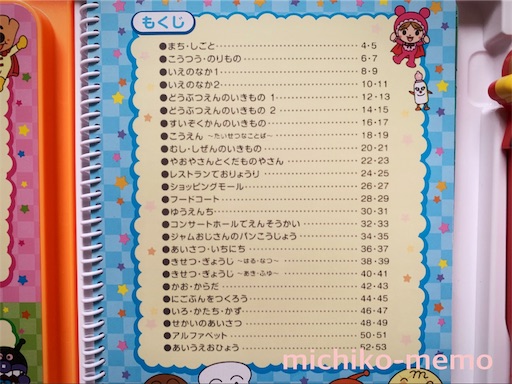 もくじ
●まち・しごと…………4・5
●こうつう・のりもの…………6・7
●いえのなか1…………8・9
●いえのなか2…………10・11
●どうぶつえんのいきもの 1…………12・13
●どうぶつえんのいきもの 2…………14・15
●すいぞくかんのいきもの…………16・17
●こうえん ～たいせつなことば～…………18・19
●むし・しぜんのいきもの…………20・21
●やおやさんとくだものやさん…………22・23
●レストランでおりょうり…………24・25
●ショッピングモール…………26・27
●フードコート…………28・29
●ゆうえんち…………30・31
●コンサートホールでえんそうかい…………32・33
●ジャムおじさんのパンこうじょう…………34・35
●あいさつ・いちにち…………36・37
●きせつ・ぎょうじ ～はる・なつ～…………38・39
●きせつ・ぎょうじ ～あき・ふゆ～…………40・41
●かお・からだ…………42・43
●にごぶんをつくろう…………44・45
●いろ・かたち・かず…………46・47
●せかいのあいさつ…………48・49
●アルファベット…………50・51
●あいうえおひょう…………52・53
michiko-memo